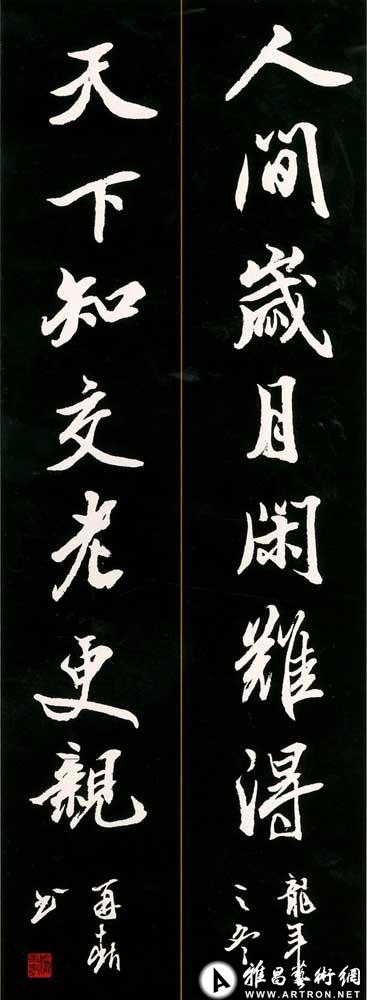 人間歲月閑難得
龍年
之冬
天下知交老更親
再
书
雅昌藝術網
WWW.ARTRON.NET